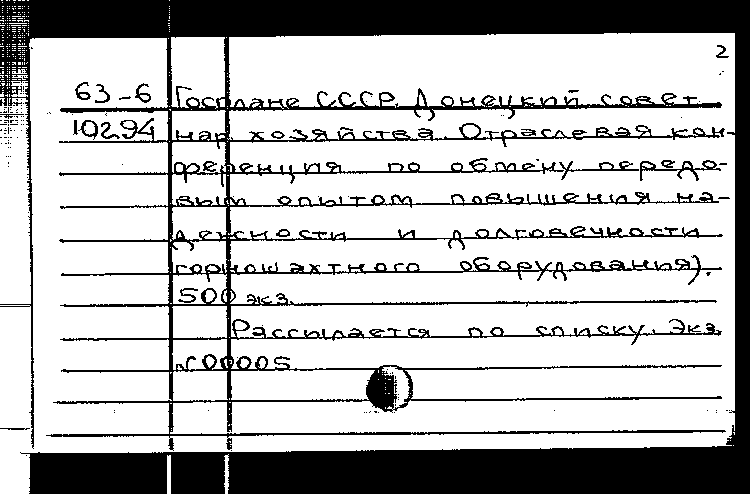 2
63-6 Госплане СССР. Донецкий совет
10294 нар. хозяйства. Отраслевая кон-
ференция по обмену передо-
вым опытом повышения на-
дежности и долговечности
горношахтного оборудования).
500 экз.
Рассылается по списку. Экз.
№00005